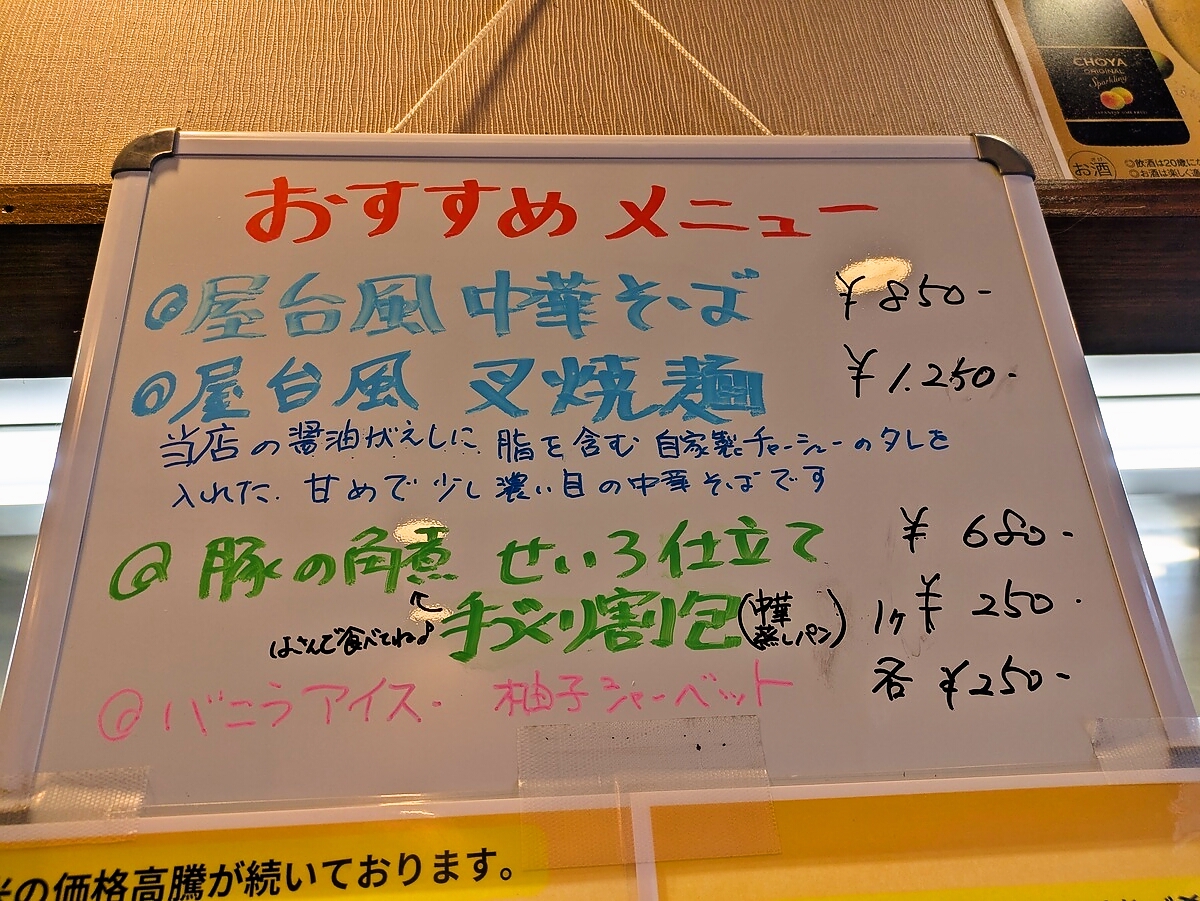 CHOYA
ORIGINAL
Sparkling
お酒
◎飲酒は20歳にな
◎お酒は楽しく適
おすすめメニュー
@屋台風 中華そば ¥850-
@屋台風 叉焼麺 ¥1.250-
当店の醤油がえしに 脂を含む 自家製チャーシューのタレを
入れた. 甘めで 少し濃い目の中華そばです
@豚の角煮 せいろ仕立て ¥680-
はさんで食べてね♪ 手づくり割包(中華蒸しパン) 1ヶ ¥250-
@バニラアイス・ 柚子シャーベット 各 ¥250-
米の価格高騰が続いております。